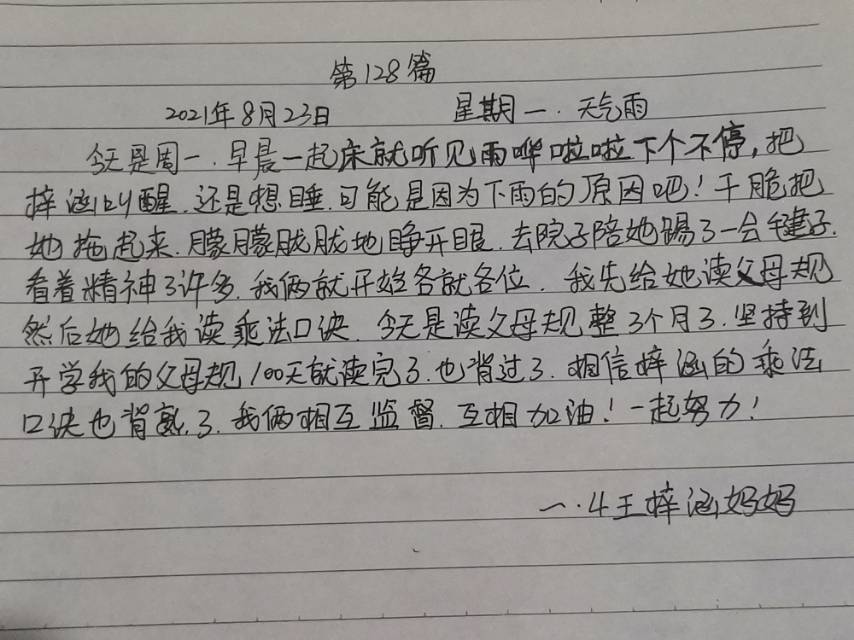 第128篇
2021年8月23日 星期一.天气雨
今天是周一.早晨一起床就听见雨哗啦啦下个不停,把
梓涵叫醒.还是想睡.可能是因为下雨的原因吧!干脆把
她拖起来.朦朦胧胧地睁开眼.去院子陪她踢了一会毽子.
看着精神了许多.我俩就开始各就各位.我先给她读父母规
然后她给我读乘法口诀.今天是读父母规整3个月了.坚持到
开学我的父母规100天就读完了.也背过了.相信梓涵的乘法
口诀也背熟了.我俩相互监督.互相加油!一起努力!
一.4王梓涵妈妈